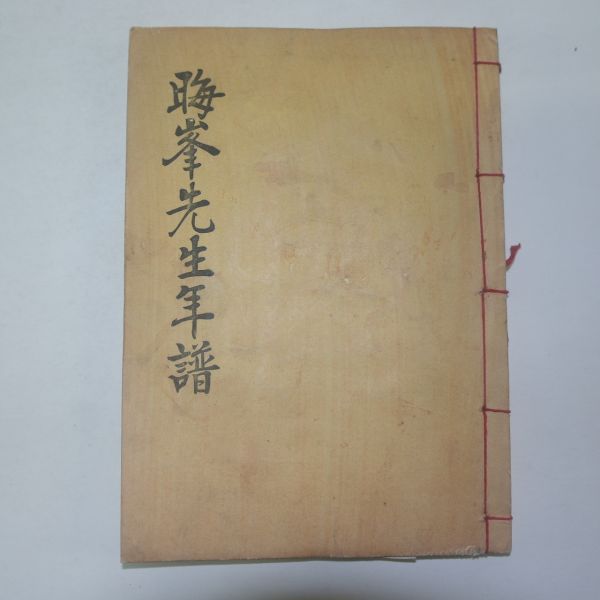 晦峯先生年譜